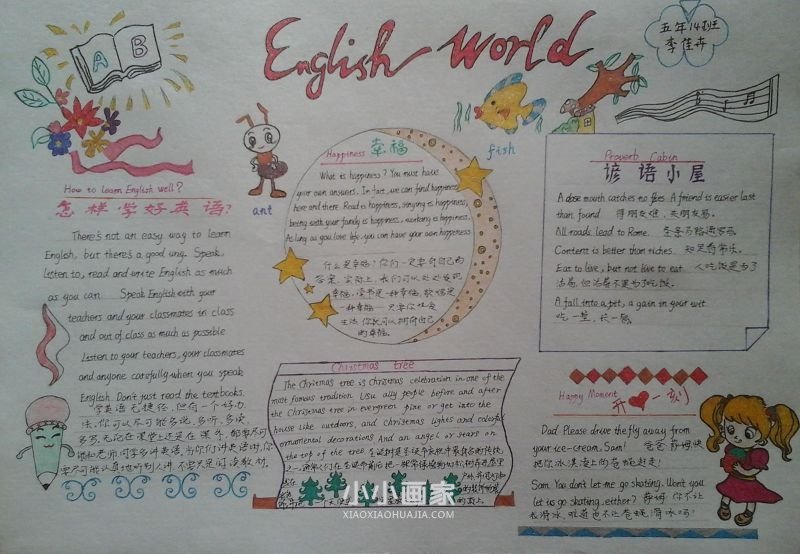 English World
五年14班
李佳卉
A B
How to learn English well?
怎样学好英语?
There's not an easy way to learn
English, but there's a good ung. Speak,
listen to, read and write English as much
as you can. Speak English with your
teachers and your classmates in class
and out of class as much as possible
Listen to your teachers, your classmates
and anyone carefully when you speak
English. Don't just read the textbooks.
学英语无捷径,但有一个好办
法,你要尽可能多说,多听,多读,
多写,无论在课堂上还是在课外,都要尽可
能和老师、同学多讲英语,当你们讲英语时,你
要尽可能认真地听别人讲,不要只是阅读教材.
ant
Happiness 幸福
What is happiness? You must have
your own answers. In fact, we can find happiness
here and there. Read is happiness, singing is happiness,
being with your family is happiness, working is happiness.
As long as you love life, you can have your own happiness
什么是幸福?你们一定要有自己的
答案,实际上,我们可以处处发现
幸福,读书是一种幸福,歌唱是
一种幸福
生活,你就可以拥有自己
的幸福.
fish
Proverb Cabin
谚语小屋
A close mouth catches no flies. A friend is easier lost
than found. 得朋友难,失朋友易.
All roads lead to Rome. 条条马路通罗马
Content is better than riches. 知足者常乐.
Eat to live, but not live to eat. 人吃饭是为了
活着,但活着不是为了吃饭.
A fall into a pit, a gain in your wit.
吃一堑,长一智.
Christmas tree
The Christmas tree is Christmas celebration in one of the
most famous tradition. Usu ally people before and after
the Christmas tree in evergreen pine or get into the
house like outdoors, and Christmas lights and colorful
ornamental decorations. And an angel or stars on
the top of the tree. 圣诞树是圣诞节庆祝中最有名的传统
之一.
Happy Moment 开心一刻
Dad. Please drive the fly away from
your ice-cream, Sam! 爸爸:萨姆,快
把你冰淇淋上的苍蝇赶走!
Sam. You don't let me go skating. Won't you
let is go skating, either? 萨姆:你不让
我滑冰,难道也不让苍蝇滑冰吗?
小小画家
XIAOXIAOHUAJIA.COM